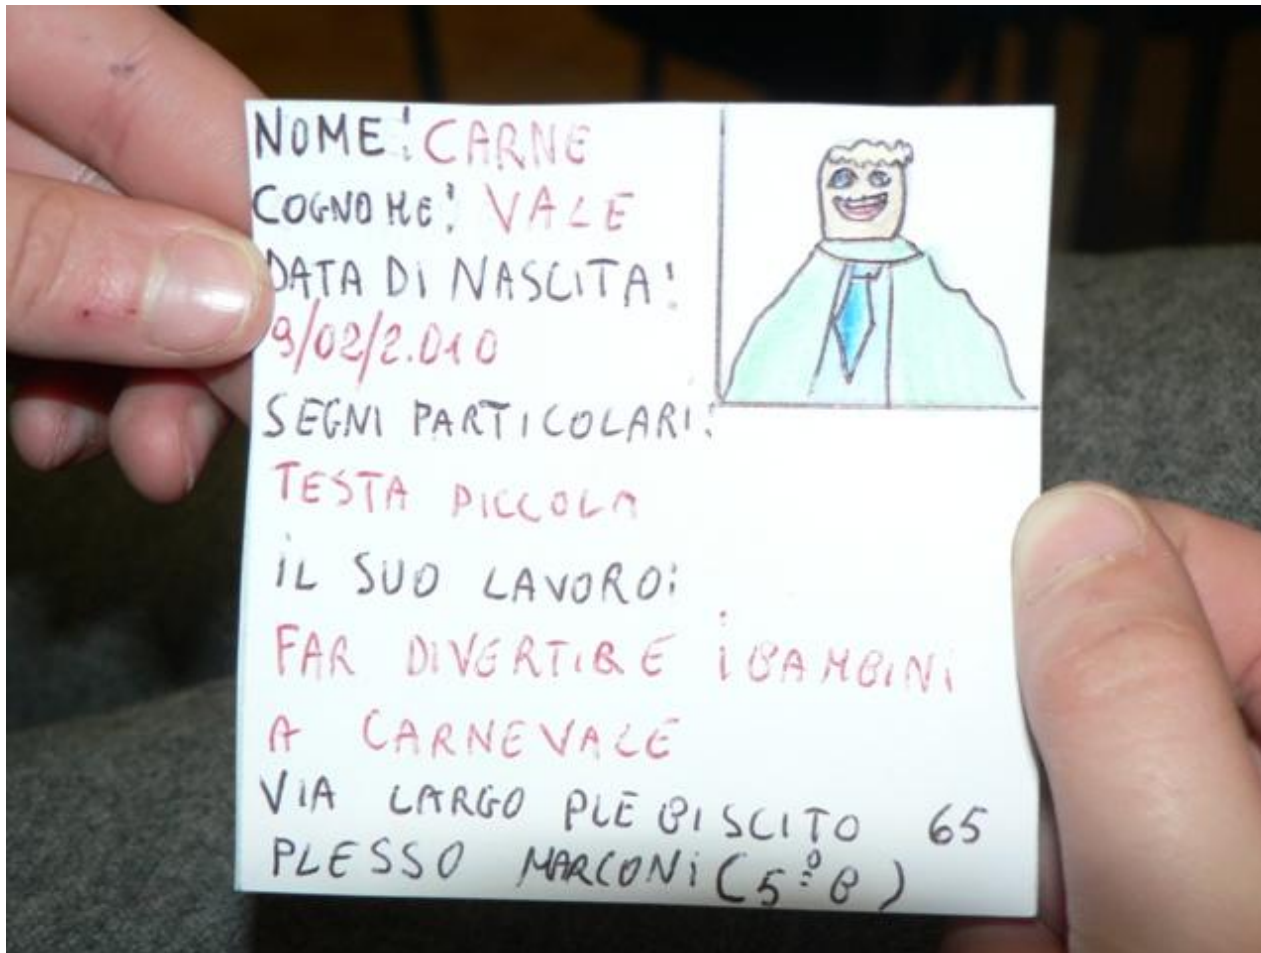 NOME: CARNE
COGNOME: VALE
DATA DI NASCITA:
9/02/2.010
SEGNI PARTICOLARI:
TESTA PICCOLA
IL SUO LAVORO:
FAR DIVERTIRE I BAMBINI
A CARNEVALE
VIA LARGO PLEBISCITO 65
PLESSO MARCONI (5º B)